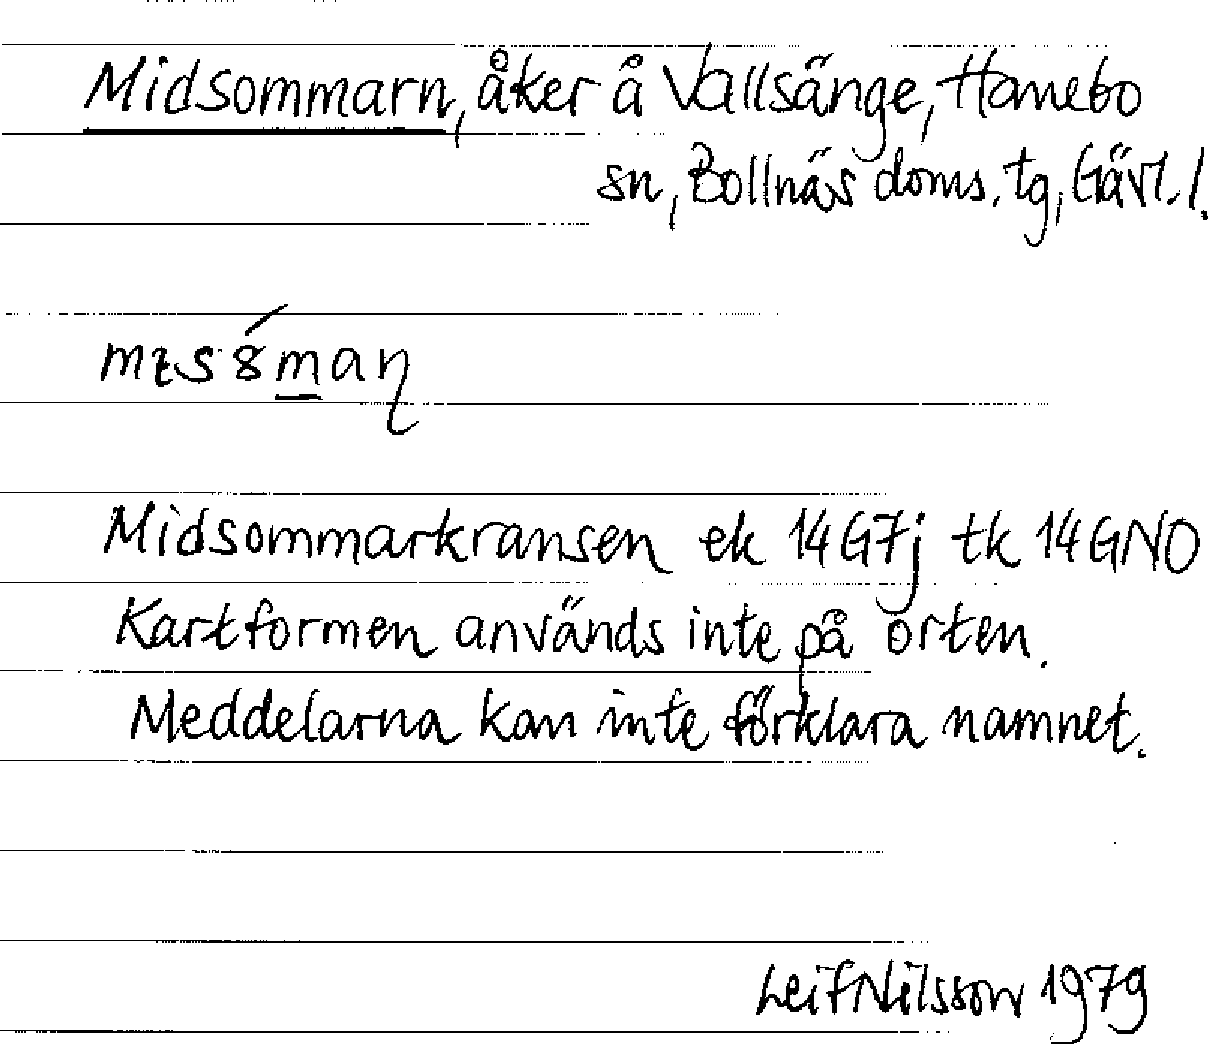 Midsommarn, åker å Vallsänge, Hanebo
sn, Bollnäs doms. tg, Gävl. l.
Midsommarkransen ek 14G7j tk 14GNO
Kartformen används inte på orten.
Meddelarna kan inte förklara namnet.
Leif Nilsson 1979